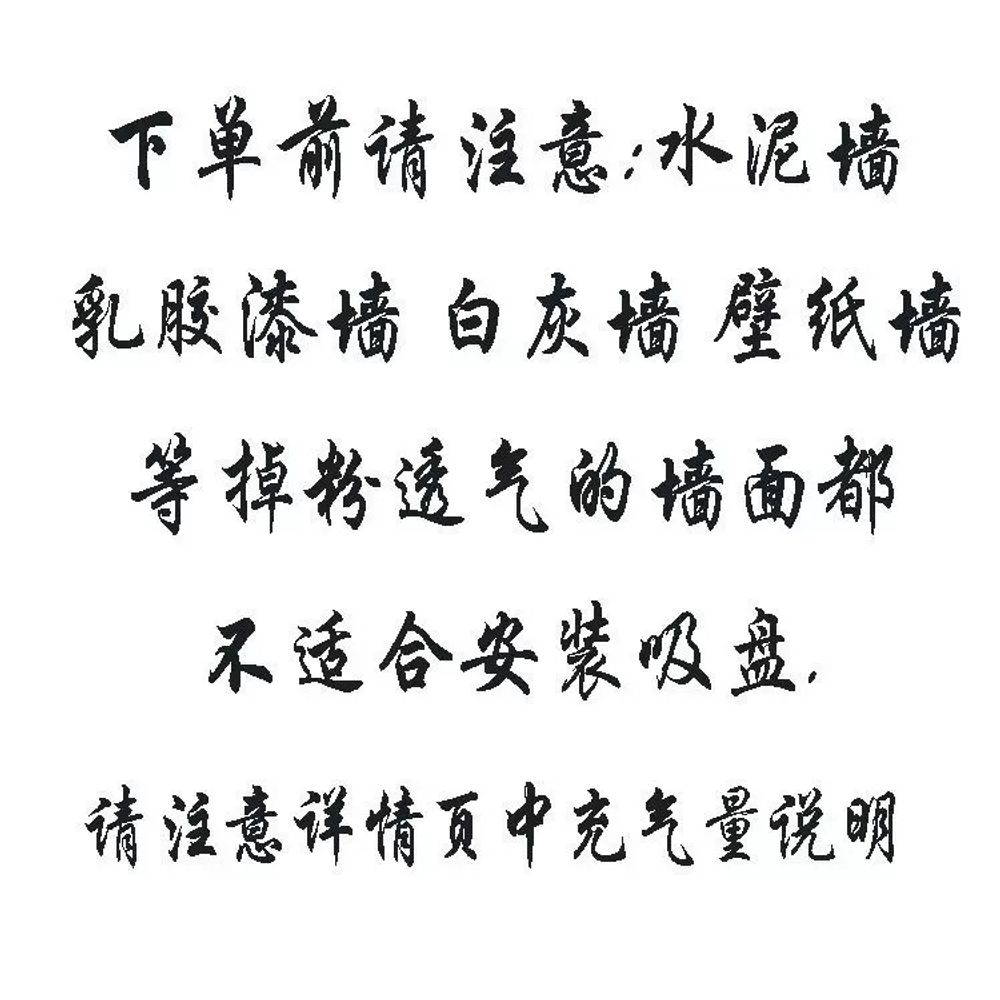 下单前请注意:水泥墙
乳胶漆墙 白灰墙 壁纸墙
等掉粉透气的墙面都
不适合安装吸盘.
请注意详情页中充气量说明